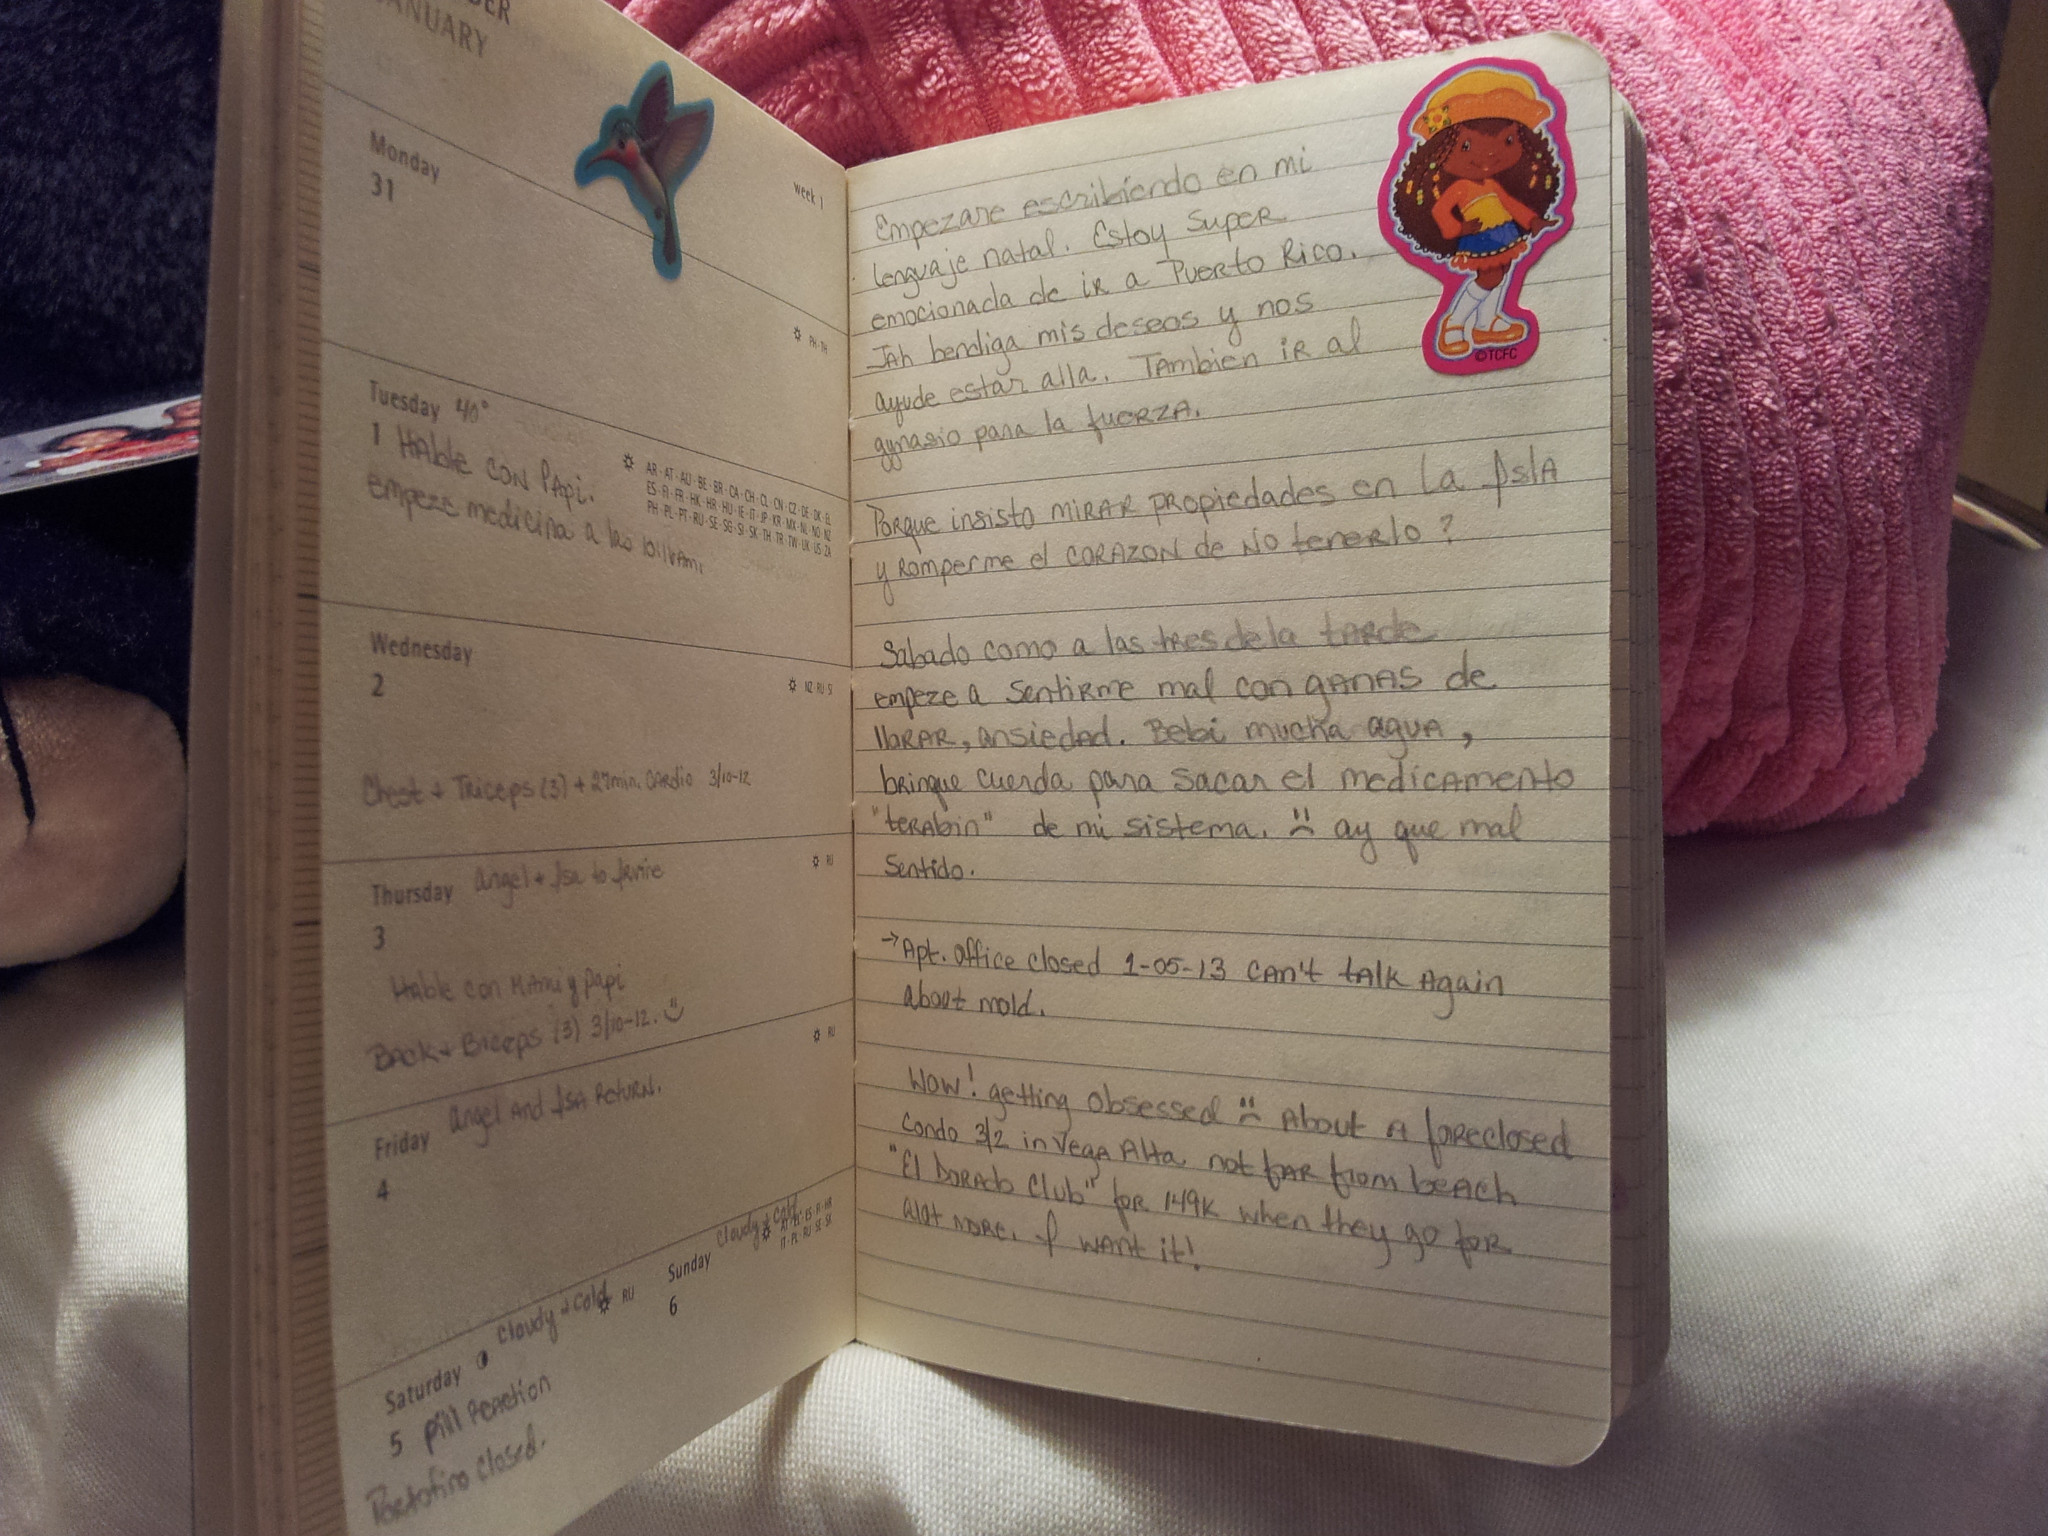 BER
JANUARY
week 1
Monday
31
PH · TH
Tuesday 40°
1 Hable con Papi.
empeze medicina a las
AR · AT · AU · BE · BR · CA · CH · CL · CN · CZ · DE · DK · EL
ES · FI · FR · HK · HR · HU · IE · IT · JP · KR · MX · NL · NO · NZ
PH · PL · PT · RU · SE · SG · SI · SK · TH · TR · TW · UK · US · ZA
Wednesday
2
NZ · RU · SI
Chest + Triceps (3) + 27min. Cardio 3/10-12
Thursday Angel + Isa to Irvine
3
RU
Hable con Mami y Papi
Back + Biceps (3) 3/10-12. :)
Friday Angel And Isa Return.
4
RU
Saturday cloudy + cold
5 pill reaction
RU
Portofino closed.
Sunday cloudy + cold
6
Empezare escribiendo en mi
lenguaje natal. Estoy super
emocionada de ir a Puerto Rico.
JAh bendiga mis deseos y nos
ayude estar alla. Tambien ir al
gynasio para la fuerza.
Porque insisto mirar propiedades en la Isla
y romperme el corazon de no tenerlo?
Sabado como a las tres de la tarde
empeze a sentirme mal con ganas de
llorar, ansiedad. Bebi mucha agua,
brinque cuerda para sacar el medicamento
"terabin" de mi sistema. :( ay que mal
sentido.
→Apt. office closed 1-05-13 can't talk again
about mold.
Wow! getting obsessed :( About A foreclosed
condo 3/2 in Vega Alta not far from beach
"El Dorado Club" for 149K when they go for
alot more. I want it!
©TCFC